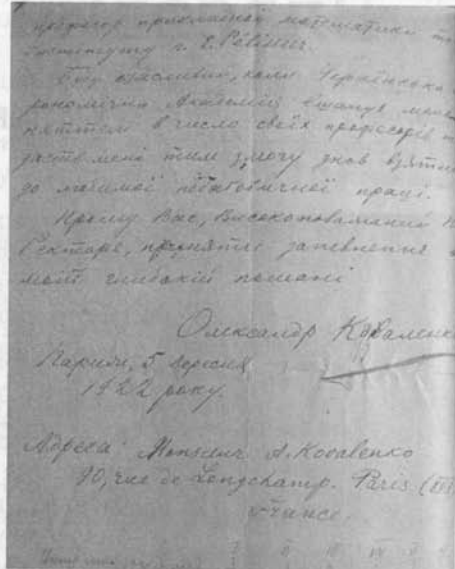 професор прикладної математики
Інституту
Буду щасливий, коли Українська
Академія вшанує мене
в число своїх професорів
дасть мені тим змогу знов взятися
до любимої педагогічної праці.
Прошу Вас, Високоповажаний
Ректоре, прийняти запевнення
моїй глибокій пошані
Олександр Коваленко
Париж, 5 вересня
1922 року.
Адреса: Monsieur A. Kovalenko
90, rue de Longchamp. Paris (XVI
France.